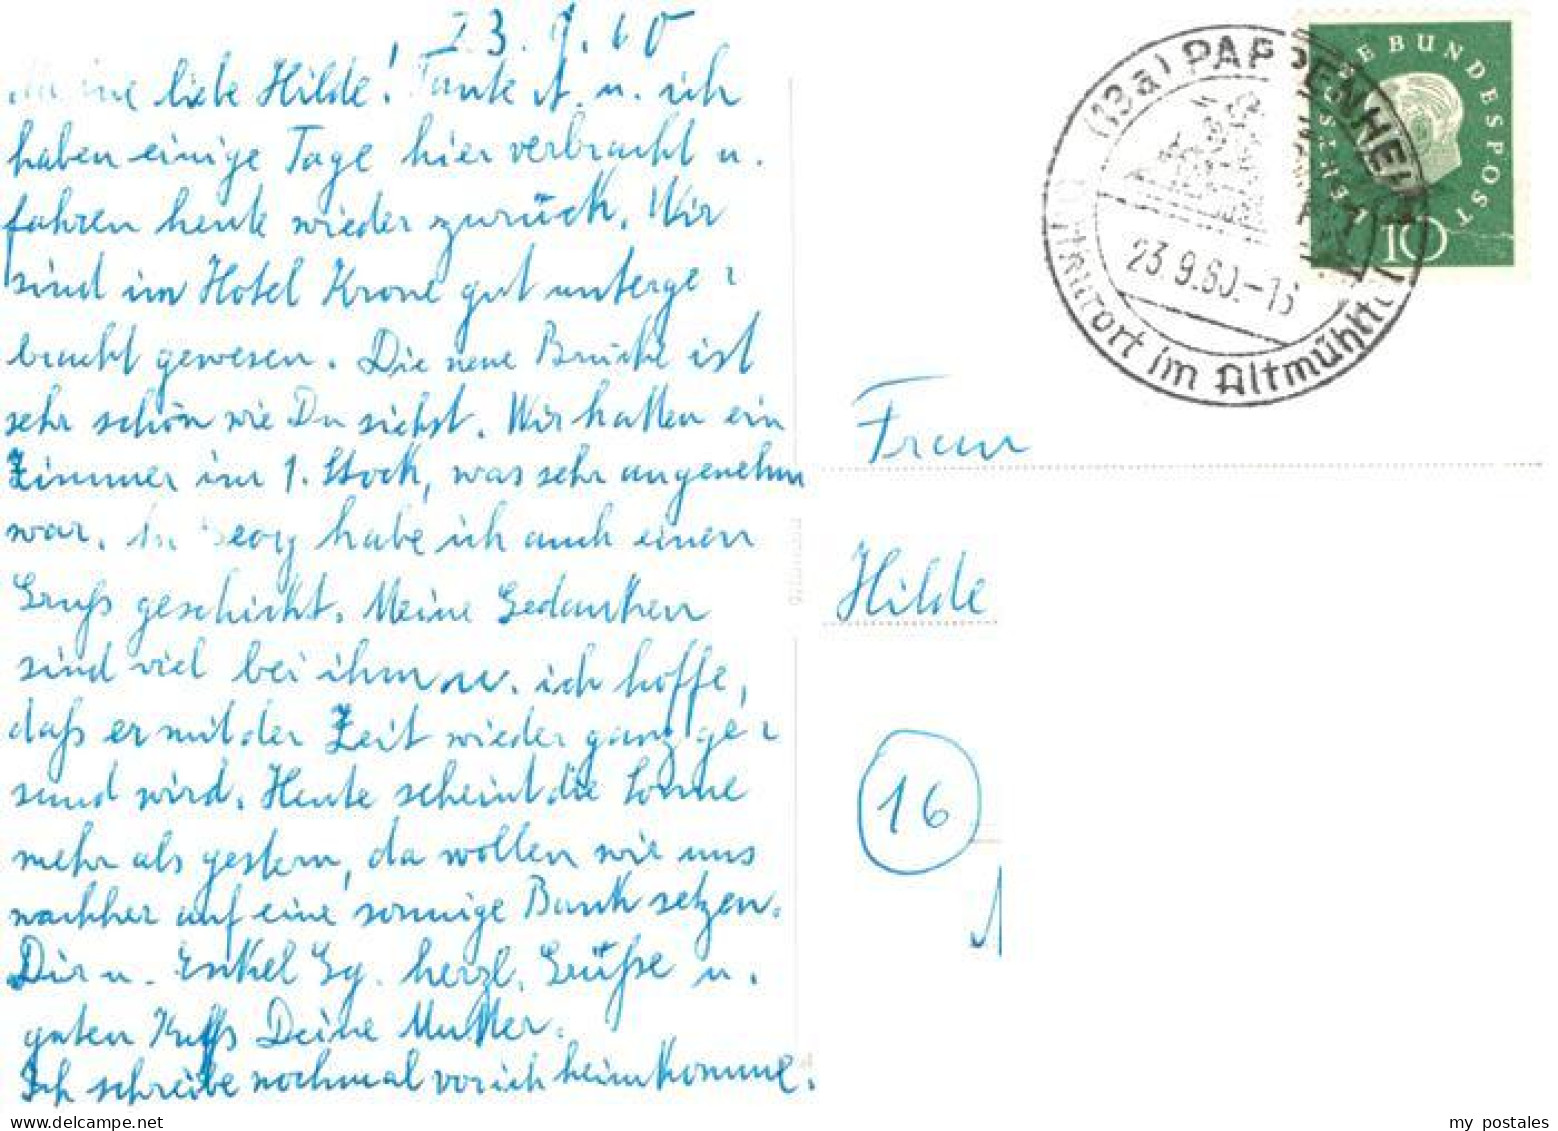 23.9.60
Meine liebe Hilde! Tante A. u. ich
haben einige Tage hier verbracht u.
fahren heute wieder zurück. Wir
sind im Hotel Krone gut unterge-
bracht gewesen. Die neue Brücke ist
sehr schön wie Du siehst. Wir hatten ein
Zimmer im 1. Stock, was sehr angenehm
war. An Georg habe ich auch einen
Gruß geschickt. Meine Gedanken
sind viel bei ihm u. ich hoffe,
daß er mit der Zeit wieder ganz ge-
sund wird. Heute scheint die Sonne
mehr als gestern, da wollen wir uns
nachher auf eine sonnige Bank setzen.
Dir u. Enkel Gg. herzl. Grüße u.
guten Kuß Deine Mutter.
Ich schreibe nochmal vor ich heimkomme.
(13a) PAPPENHEIM
23.9.60.-1
im Altmühltal
DEUTSCHE BUNDESPOST
10
Frau
Hilde
16
1
my postales